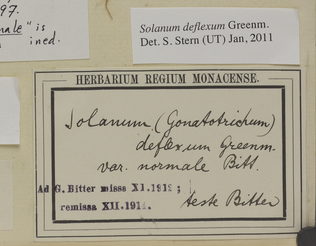 97.
male" is
ined.
Solanum deflexum Greenm.
Det. S. Stern (UT) Jan, 2011
HERBARIUM REGIUM MONACENSE.
Solanum (Gonatotrichum)
deflexum Greenm.
var. normale Bitt.
Ad G. Bitter missa XI.1912;
remissa XII.191
teste Bitter